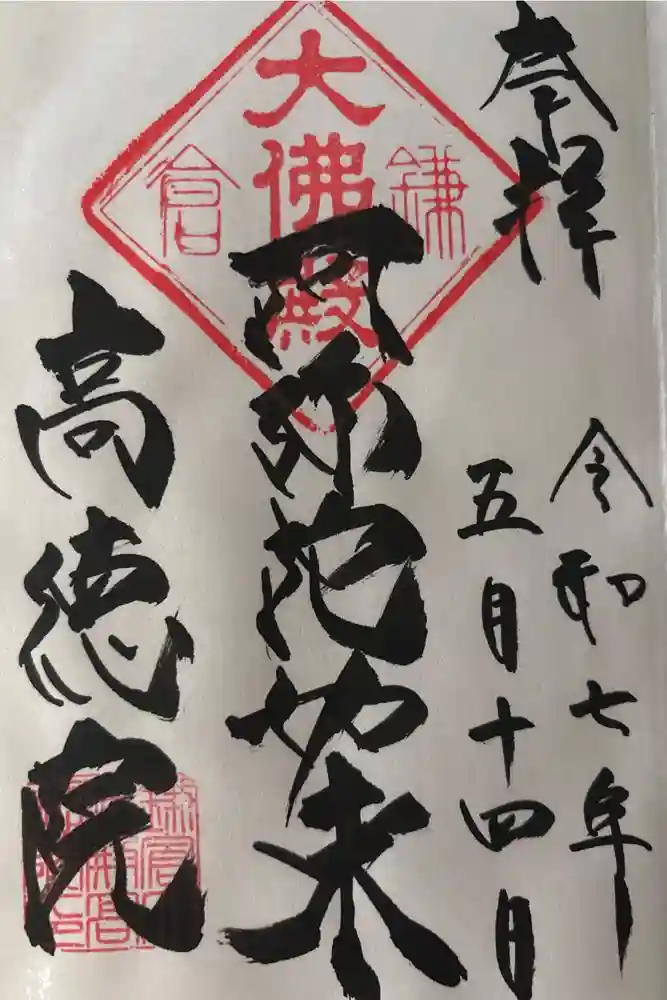 奉拝
令和七年
五月十四日
鎌倉
大佛殿
阿弥陀如来
高徳院